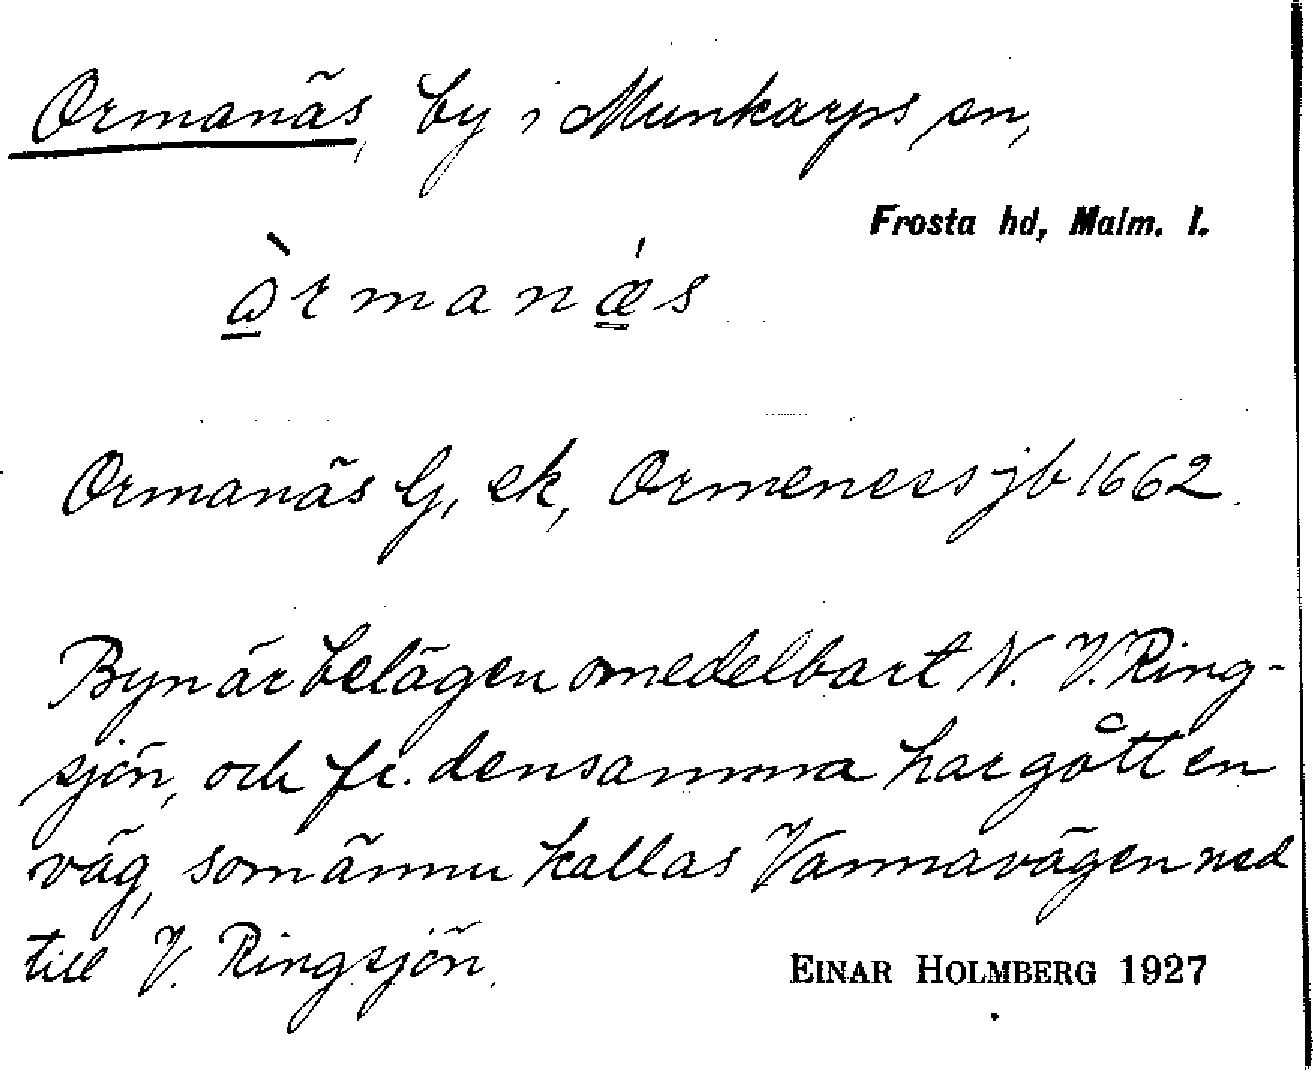 Ormanäs, by i Munkarps sn,
Frosta hd, Malm. l.
ɷ̀rmanǽs
Ormanäs G, ek, Ormeness jb 1662.
Byn är belägen omedelbart N. V. Ring-
sjön, och fr. densamma har gått en
väg, som ännu kallas Vannavägen ned
till V. Ringsjön.
EINAR HOLMBERG 1927